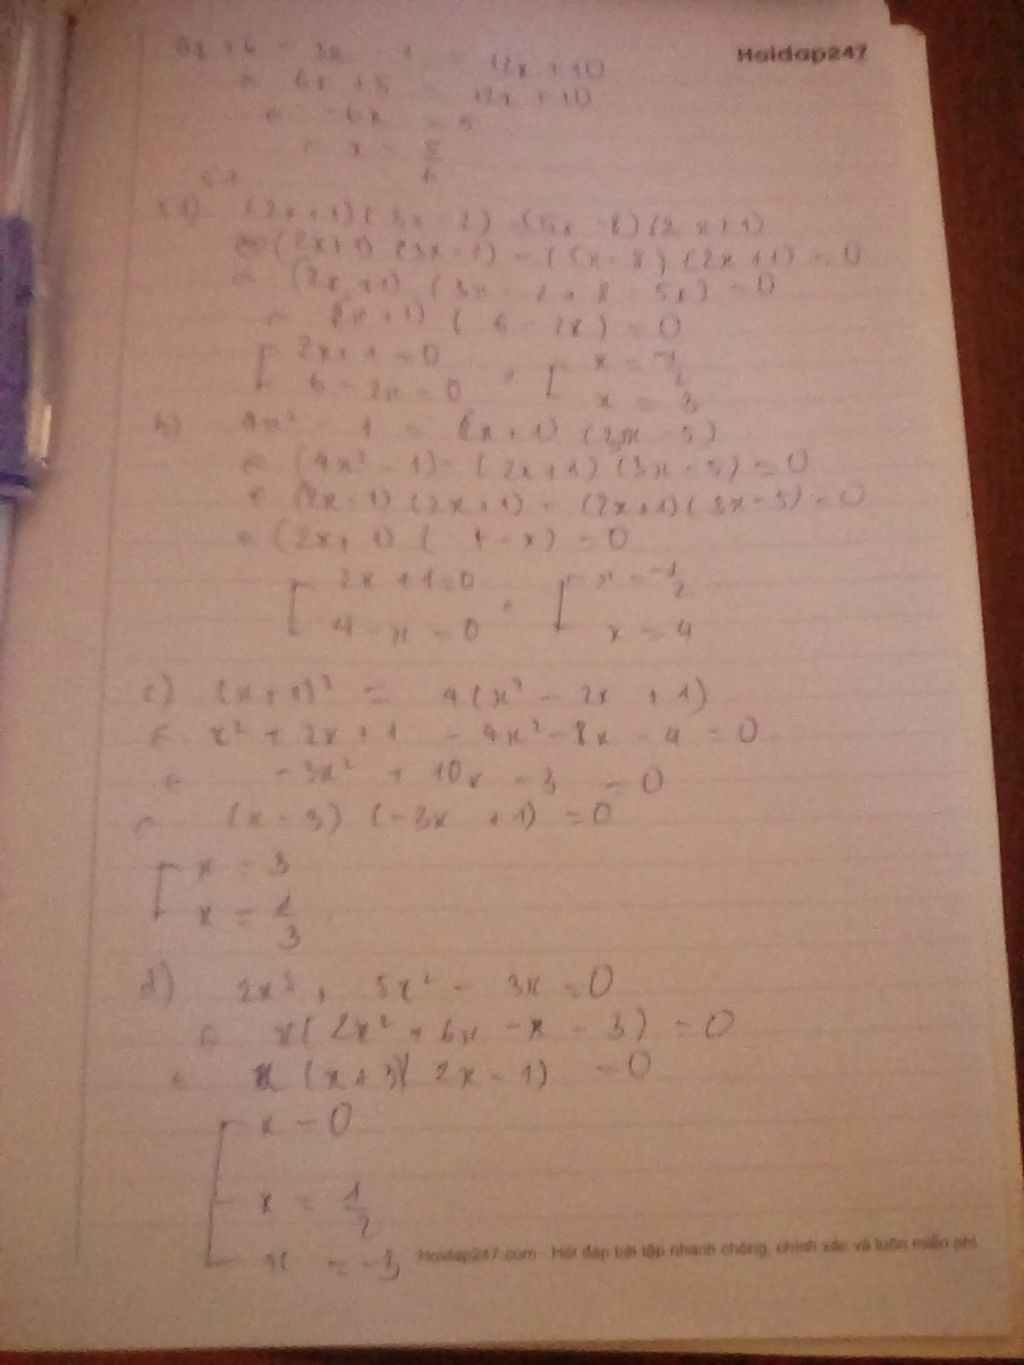 Hoidap247
9x + 6 - 3x - 1 = 12x + 10
⇔ 6x + 5 = 12x + 10
⇔ -6x = 5
x = 5/6
a) (2x+1)(3x-2) = (5x-8)(2x+1)
⇔ (2x+1)(3x-2) - (5x-8)(2x+1) = 0
⇔ (2x+1)(3x-2+8-5x) = 0
⇔ (2x+1)(6-2x) = 0
[ 2x+1=0 [ x = -1/2
6-2x=0 x = 3
b) 4x² - 1 = (2x+1)(3x-5)
⇔ (4x²-1) - (2x+1)(3x-5) = 0
⇔ (2x-1)(2x+1) - (2x+1)(3x-5) = 0
⇔ (2x+1)(4-x) = 0
[ 2x+1=0 [ x = -1/2
4-x=0 x = 4
c) (x+1)² = 4(x² - 2x + 1)
⇔ x² + 2x + 1 - 4x² - 8x - 4 = 0
⇔ -3x² + 10x - 3 = 0
⇔ (x-3)(-3x+1) = 0
[ x = 3
x = 1/3
d) 2x³ + 5x² - 3x = 0
⇔ x(2x² + 6x - x - 3) = 0
⇔ x(x+3)(2x-1) = 0
[ x = 0
x = 1/2
x = -3
Hoidap247.com - Hỏi đáp bài tập nhanh chóng, chính xác và luôn miễn phí